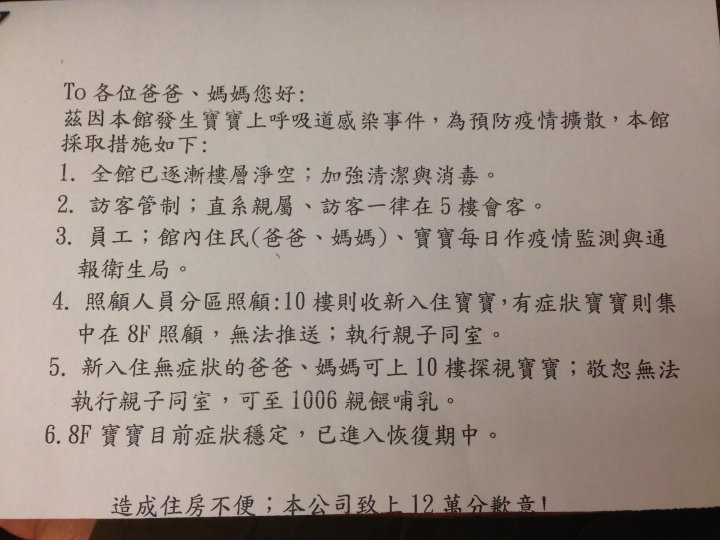 To 各位爸爸、媽媽您好:
茲因本館發生寶寶上呼吸道感染事件，為預防疫情擴散，本館
採取措施如下:
1. 全館已逐漸樓層淨空；加強清潔與消毒。
2. 訪客管制；直系親屬、訪客一律在 5 樓會客。
3. 員工；館內住民(爸爸、媽媽)、寶寶每日作疫情監測與通
報衛生局。
4. 照顧人員分區照顧:10 樓則收新入住寶寶,有症狀寶寶則集
中在 8F 照顧，無法推送；執行親子同室。
5. 新入住無症狀的爸爸、媽媽可上 10 樓探視寶寶；敬恕無法
執行親子同室，可至 1006 親餵哺乳。
6.8F 寶寶目前症狀穩定，已進入恢復期中。
造成住房不便；本公司致上 12 萬分歉意!